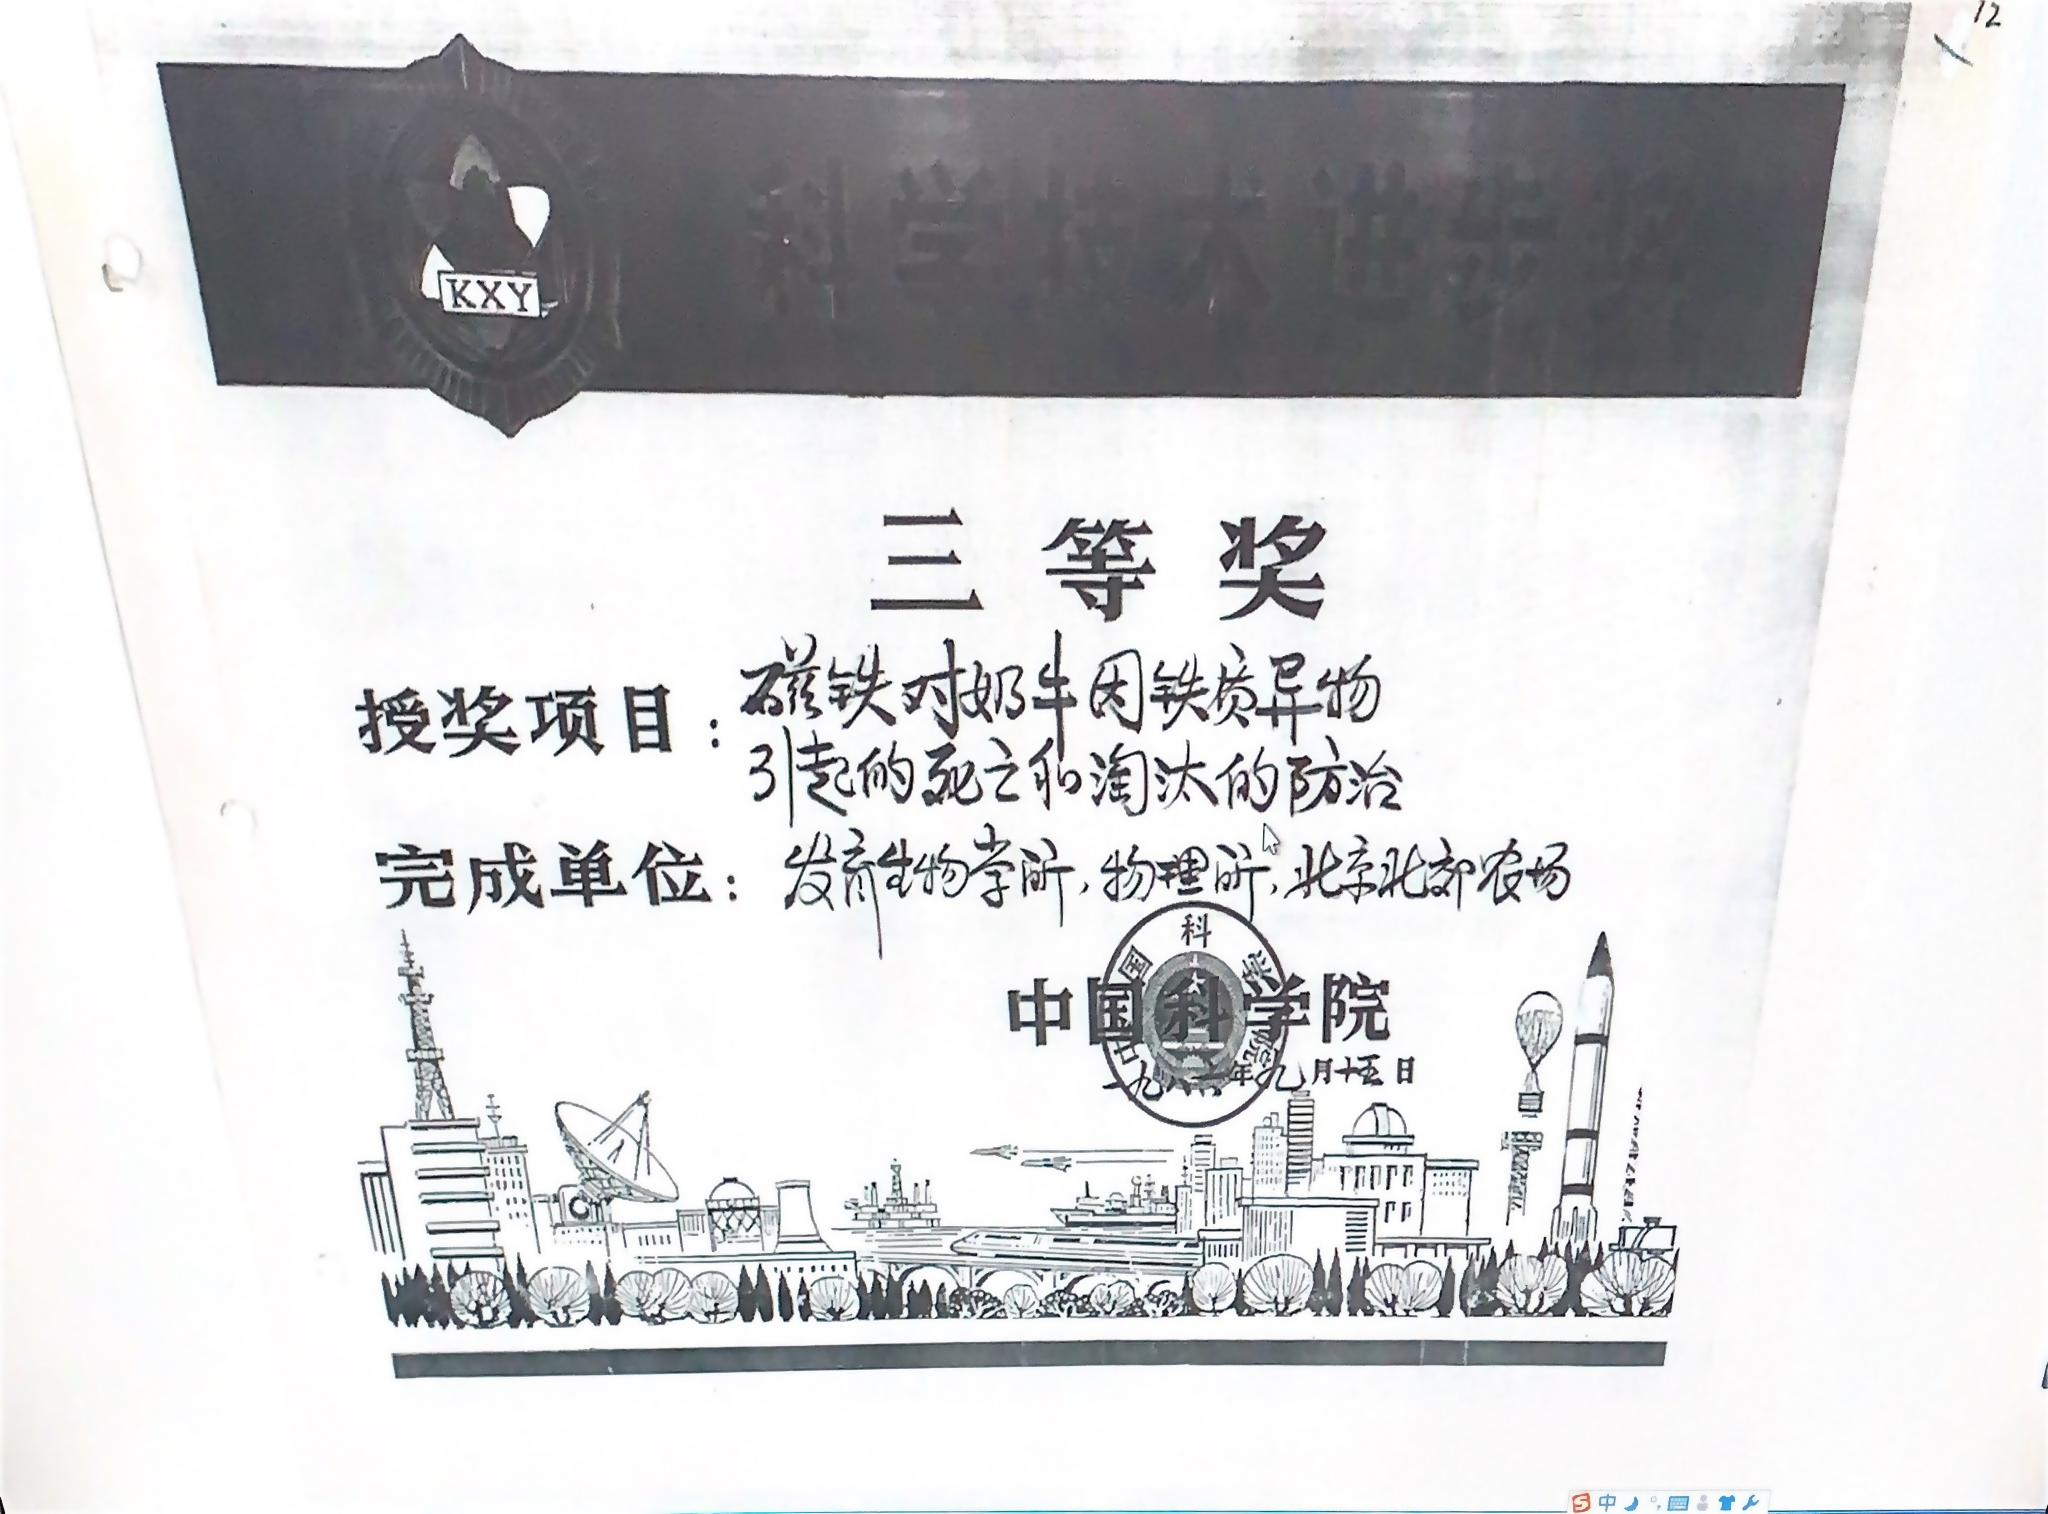 12
科学技术进步奖
KXY
三等奖
授奖项目：磁铁对奶牛因铁质异物
引起的死亡和淘汰的防治
完成单位：发育生物学所，物理所，北京北郊农场
中国科学院
中国科学院
一九八六年九月十五日
中